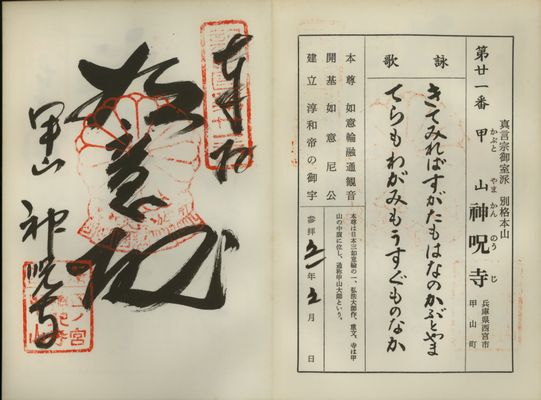 真言宗御室派 別格本山
第廿一番 甲山 神呪寺
かぶと やま かん のう じ
兵庫県西宮市
甲山町
詠歌
きてみればすがたもはなのかぶとやま
てらもわがみもうすぐものなか
本尊 如意輪融通観音
開基 如意尼公
建立 淳和帝の御宇
本尊は日本三如意輪の一、弘法大師作、重文、寺は甲
山の中腹に位し、通称甲山大師という。
参拝 年 月 日
奉拝
甲山 神呪寺